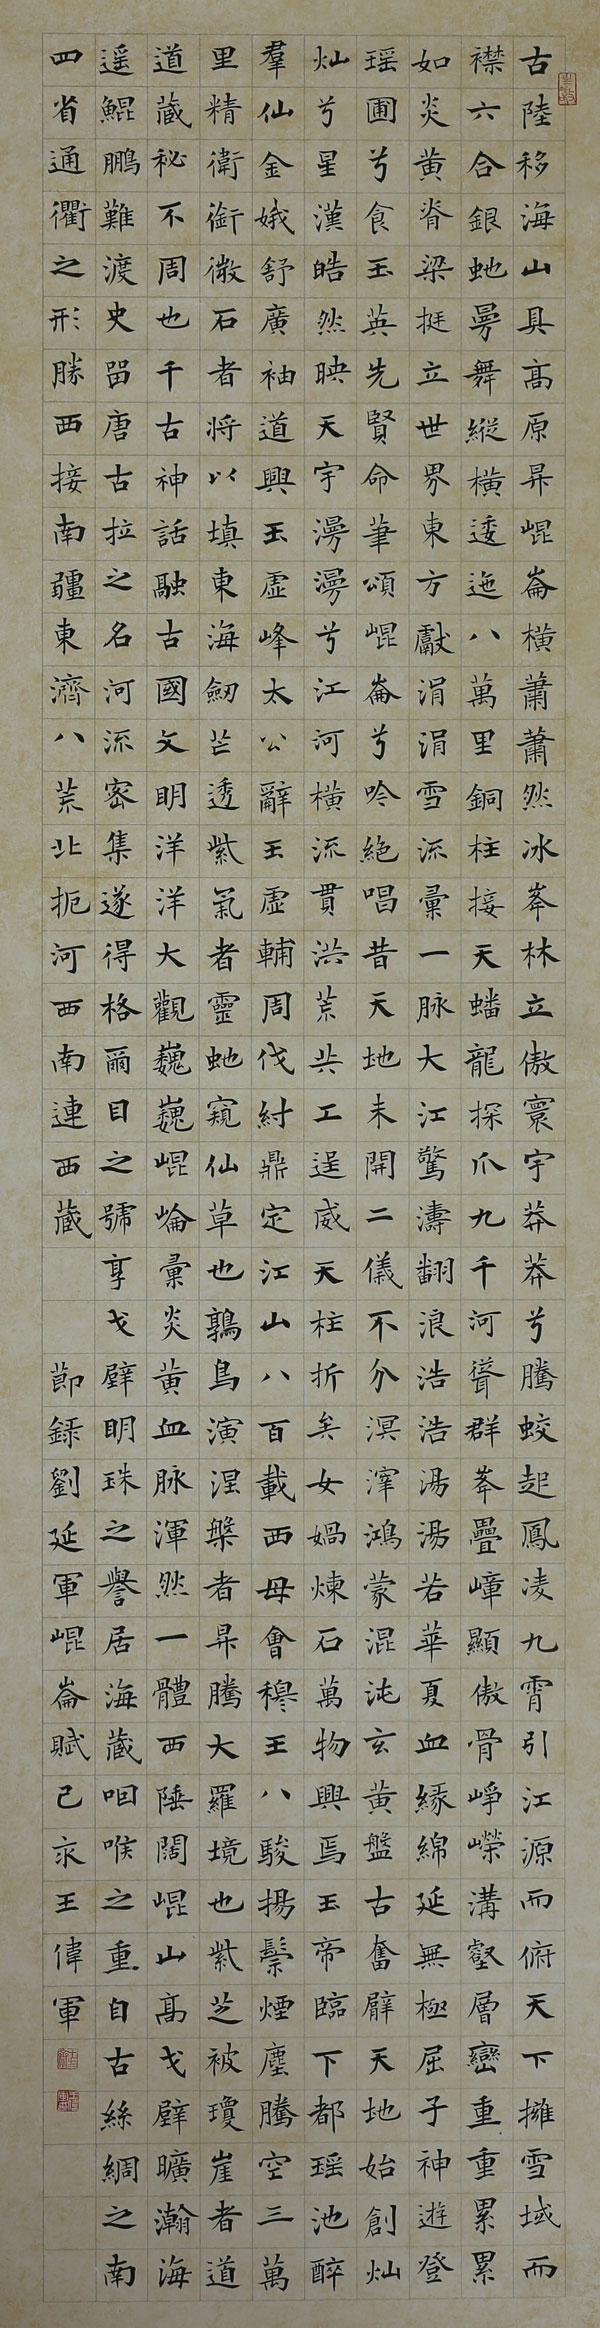 古陸移海山具高原昇崐崙橫蕭蕭然冰峯林立傲寰宇莽莽兮騰蛟起鳳凌九霄引江源而俯天下擁雪域而
襟六合銀虵曼舞縱橫逶迤八萬里銅柱接天蟠龍探爪九千河聳群峯疊嶂顯傲骨崢嶸溝壑層巒重重累累
如炎黃脊梁挺立世界東方獻涓涓雪流彙一脉大江驚濤翻浪浩浩湯湯若華夏血緣綿延無極屈子神遊登
瑶圃兮食玉英先賢命筆頌崐崙兮吟絕唱昔天地未開二儀不分溟滓鴻蒙混沌玄黃盤古奮臂天地始創灿
灿兮星漢皓然映天宇漫漫兮江河橫流貫洪荒共工逞威天柱折矣女媧煉石萬物興焉玉帝臨下都瑶池醉
羣仙金娥舒廣袖道興玉虛峰太公辭玉虛輔周伐紂鼎定江山八百載西母會穆王八駿揚鬃煙塵騰空三萬
里精衛銜微石者將以填東海劒芒透紫氣者靈虵窺仙草也鶉鳥演涅槃者昇騰大羅境也紫芝被瓊崖者道
道藏秘不周也千古神話融古國文明洋洋大觀巍巍崐崘彙炎黃血脉渾然一體西陲闊崐山高戈壁曠瀚海
遥鯤鵬難渡史畱唐古拉之名河流密集遂得格爾目之號享戈壁明珠之譽居海藏咽喉之重自古絲綢之南
四省通衢之形勝西接南疆東濟八荒北扼河西南連西藏 節錄劉延軍崐崙賦己亥王偉軍